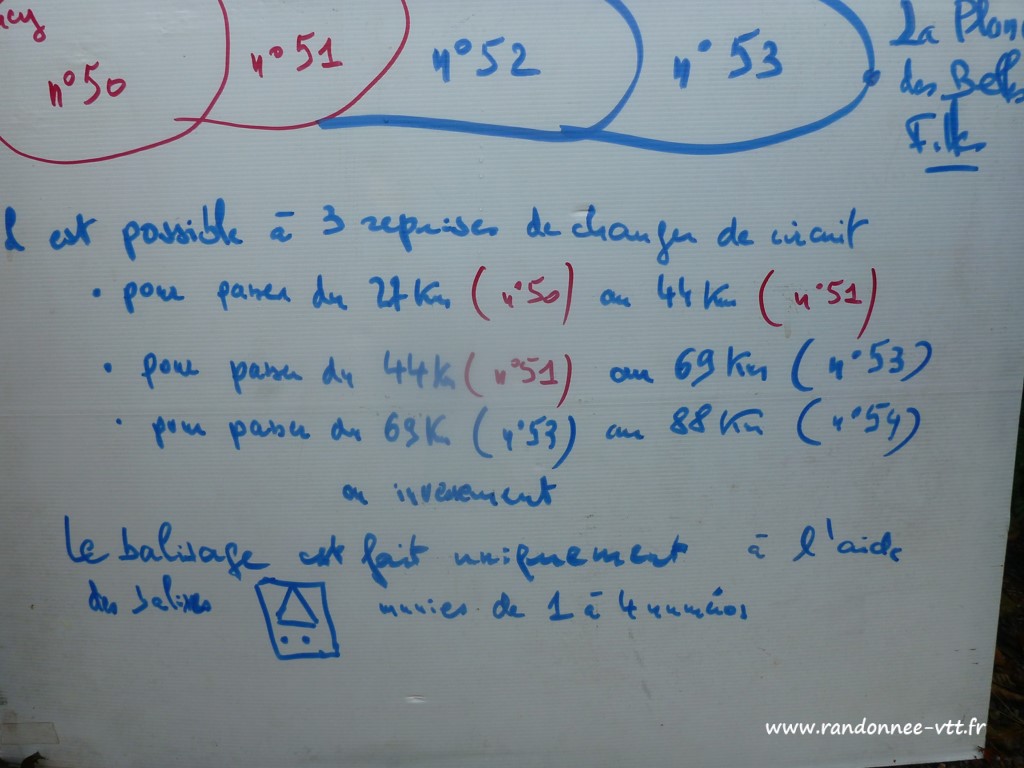 n°50 n°51 n°52 n°53
La Planche
des Belles
Filles
Il est possible à 3 reprises de changer de circuit
• pour passer du 27 Km (n°50) au 44 Km (n°51)
• pour passer du 44 K (n°51) au 69 Km (n°53)
• pour passer du 69 K (n°53) au 88 Km (n°54)
ou inversement
Le balisage est fait uniquement à l'aide
des balises munies de 1 à 4 numéros
www.randonnee-vtt.fr